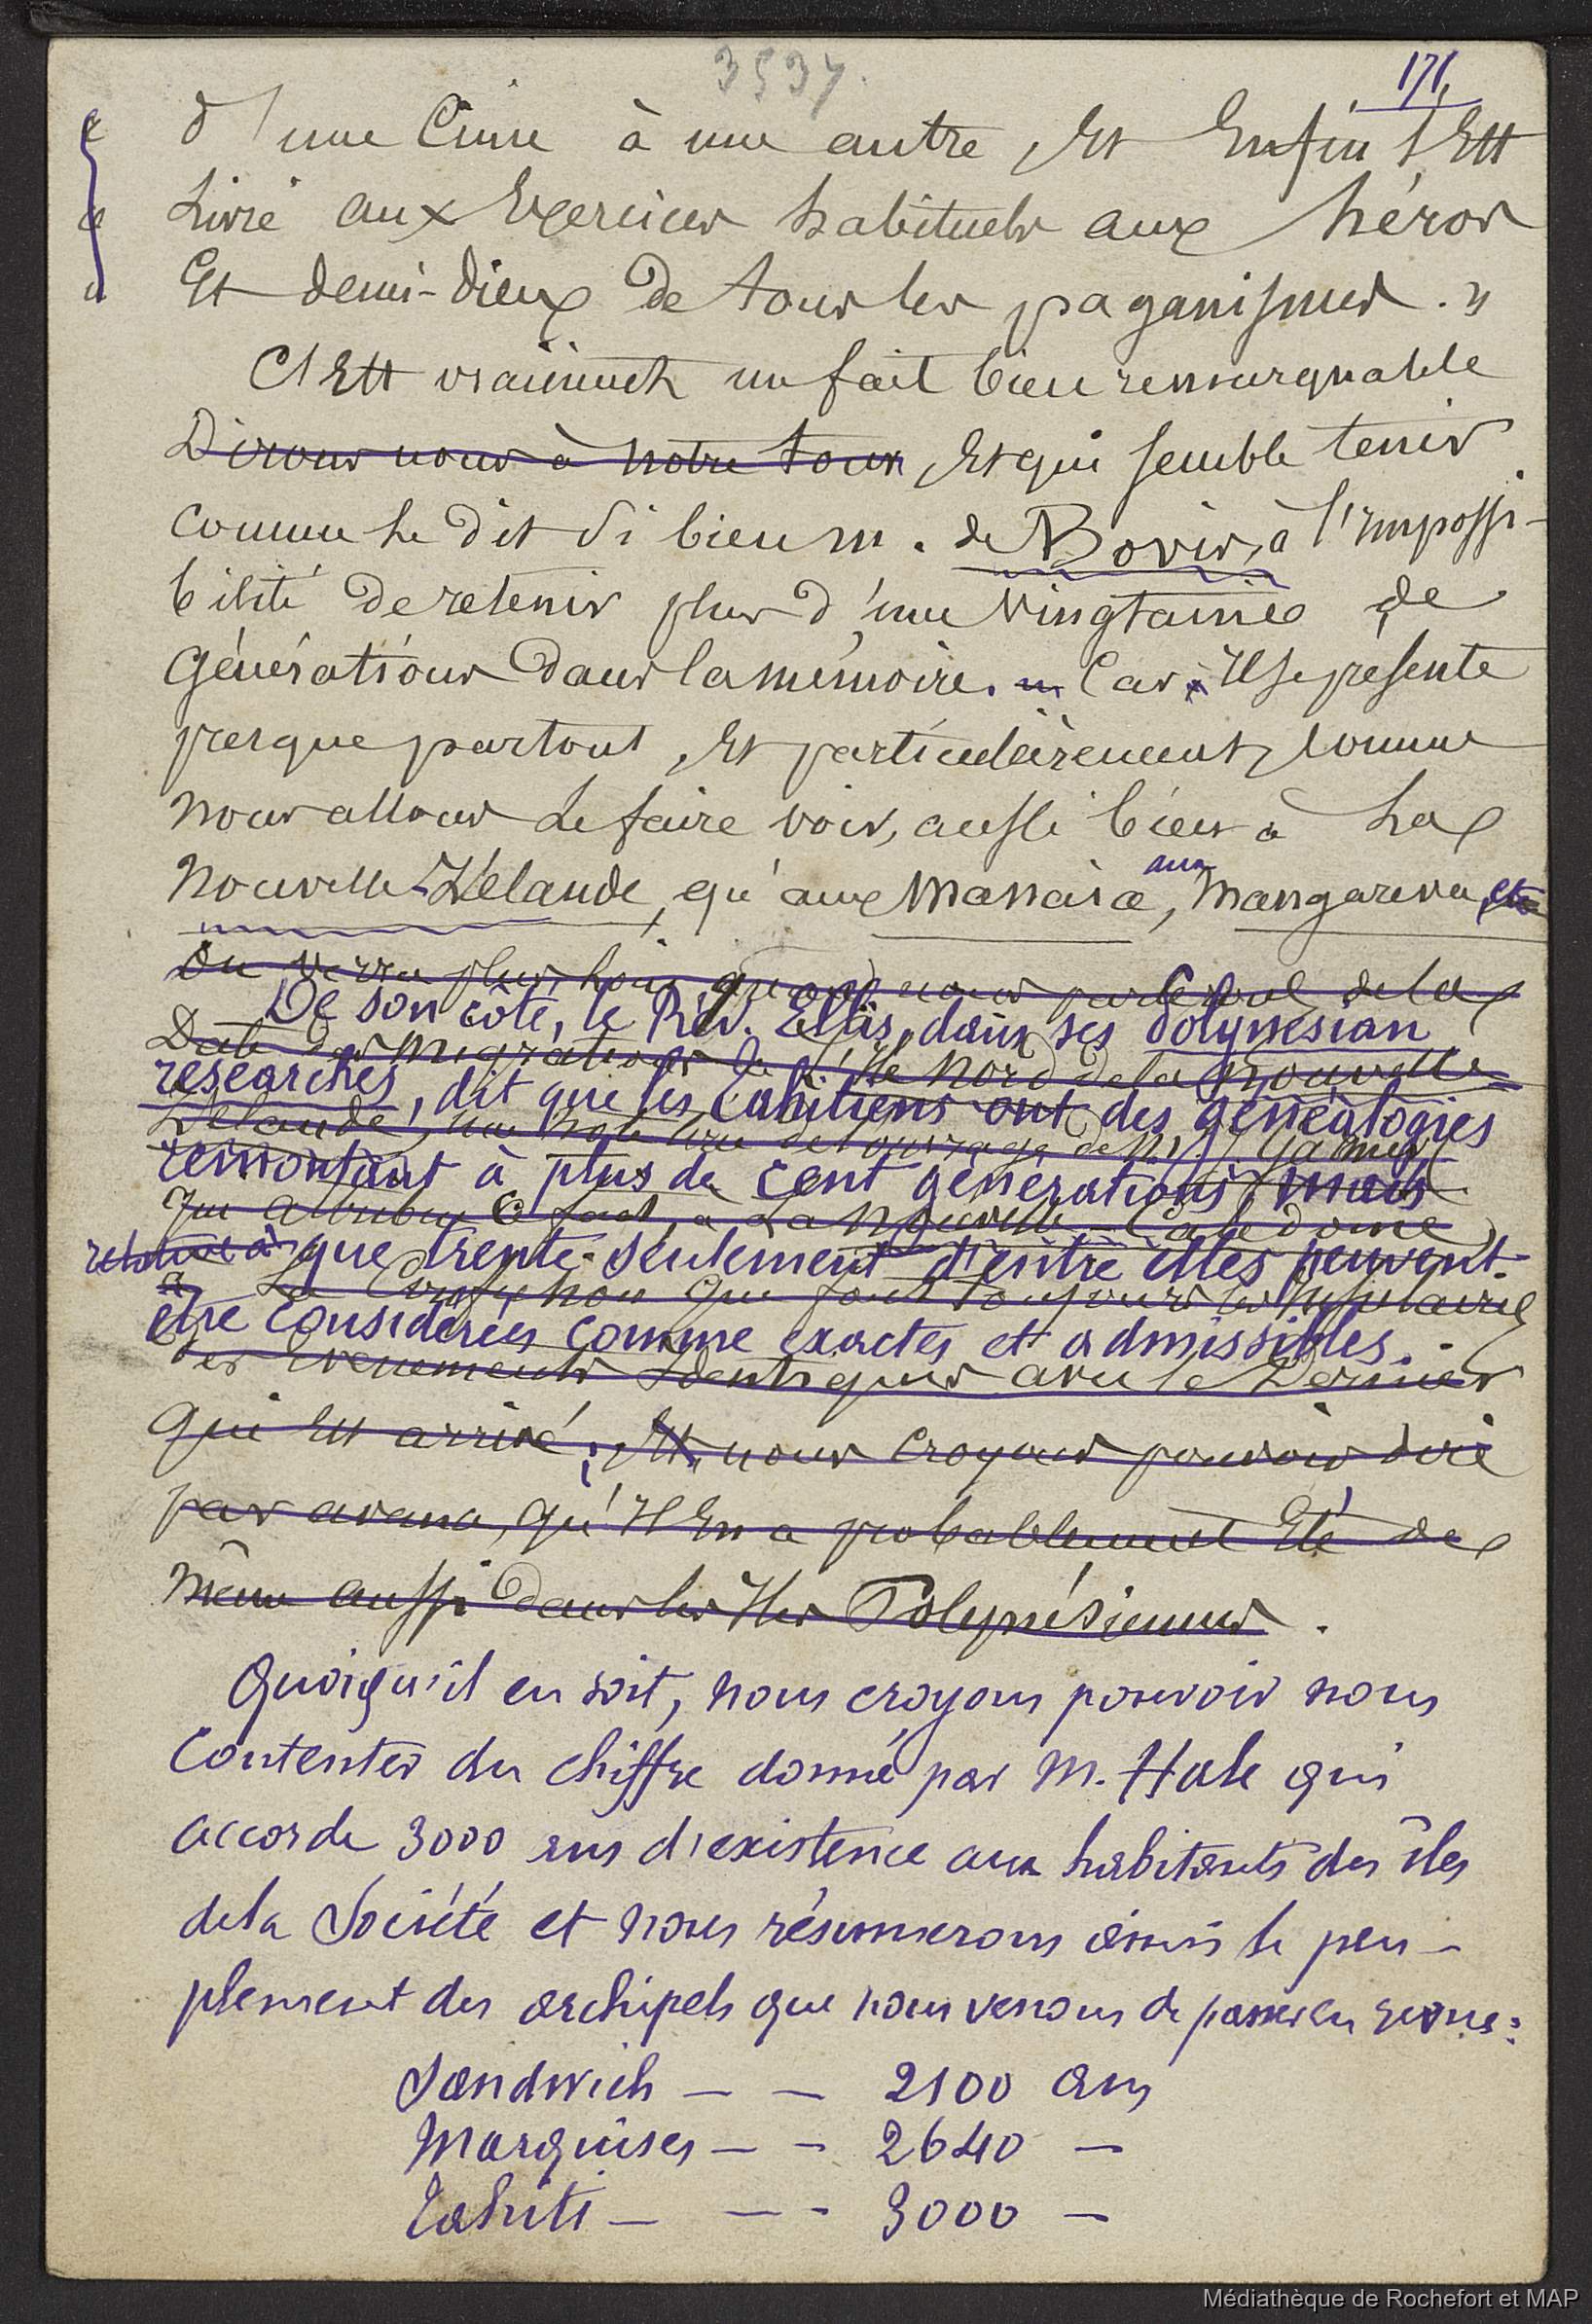 3534.
171.
« d'une Cime à une autre, Et Enfin s'Est
« Livré aux Exercices habituels aux héros
« Et demi-dieux de tous les paganismes. »
C'Est vraiment un fait bien remarquable
Dirons nous à notre tour, Et qui semble tenir
comme le dit si bien M. de Bovis, à l'impossi-
bilité de retenir plus d'une vingtaine de
Générations dans la mémoire. Car Il se présente
presque partout, Et particulièrement, comme
nous allons Le faire voir, aussi bien à La
Nouvelle-Zélande, qu'aux Manaia, aux Mangareva, etc
On verra plus loin, quand nous parlerons de la
De son côté, le Rév. Ellis, dans ses Polynesian
Date des Migrations de l'Ile Nord de la Nouvelle
researches, dit que les Tahitiens ont des généalogies
Zélande, une Note tirée de l'ouvrage de M. J. Garnier
remontant à plus de cent générations, mais
qui attribue ce fait, à La Nouvelle-Calédonie,
que trente seulement d'entre elles peuvent
à La Confusion que font toujours les Insulaires
être considérées comme exactes et admissibles.
des Evénements Identiques avec le Dernier
qui Est arrivé; Et nous croyons pouvoir dire
par avance, qu'Il En a probablement Eté de
même aussi dans les Iles Polynésiennes.
Quoiqu'il en soit, nous croyons pouvoir nous
contenter du chiffre donné par M. Hale qui
accorde 3000 ans d'existence aux habitants des îles
de la Société et nous résumerons ainsi le peu-
plement des archipels que nous venons de passer en revue:
Sandwich — — 2100 ans
Marquises — — 2640 —
Tahiti — — — 3000 —
Médiathèque de Rochefort et MAP